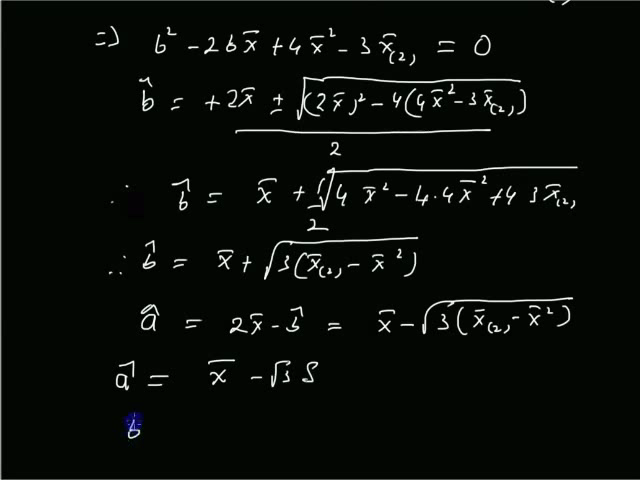 ⇒ b² − 2bx̄ + 4x̄² − 3x̄₍₂₎ = 0
b̂ = +2x̄ ± √((2x̄)² − 4(4x̄² − 3x̄₍₂₎)) / 2
∴ b̂ = x̄ + 1/2 √(4x̄² − 4·4x̄² + 4 3x̄₍₂₎)
∴ b̂ = x̄ + √(3(x̄₍₂₎ − x̄²))
â = 2x̄ − b̂ = x̄ − √(3(x̄₍₂₎ − x̄²))
â = x̄ − √3 S
b